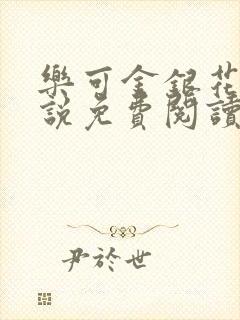 樂可金銀花
說免費閱讀
尹於世